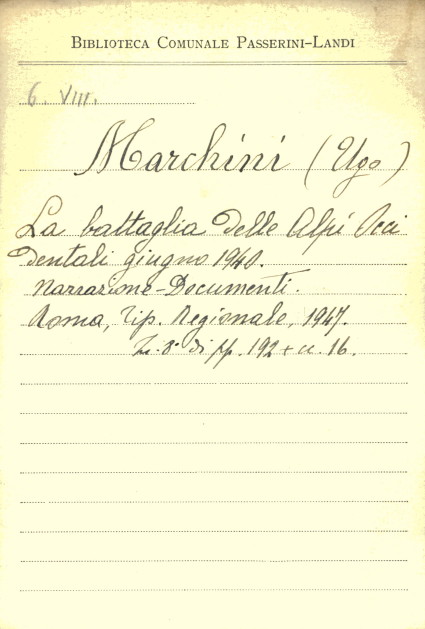 BIBLIOTECA COMUNALE PASSERINI-LANDI
6. VIII.
Marchini (Ugo)
La battaglia delle Alpi Occi
dentali giugno 1940.
Narrazione-Documenti.
Roma, Tip. Regionale, 1947.
In. 8° di pp. 192 + cc. 16.